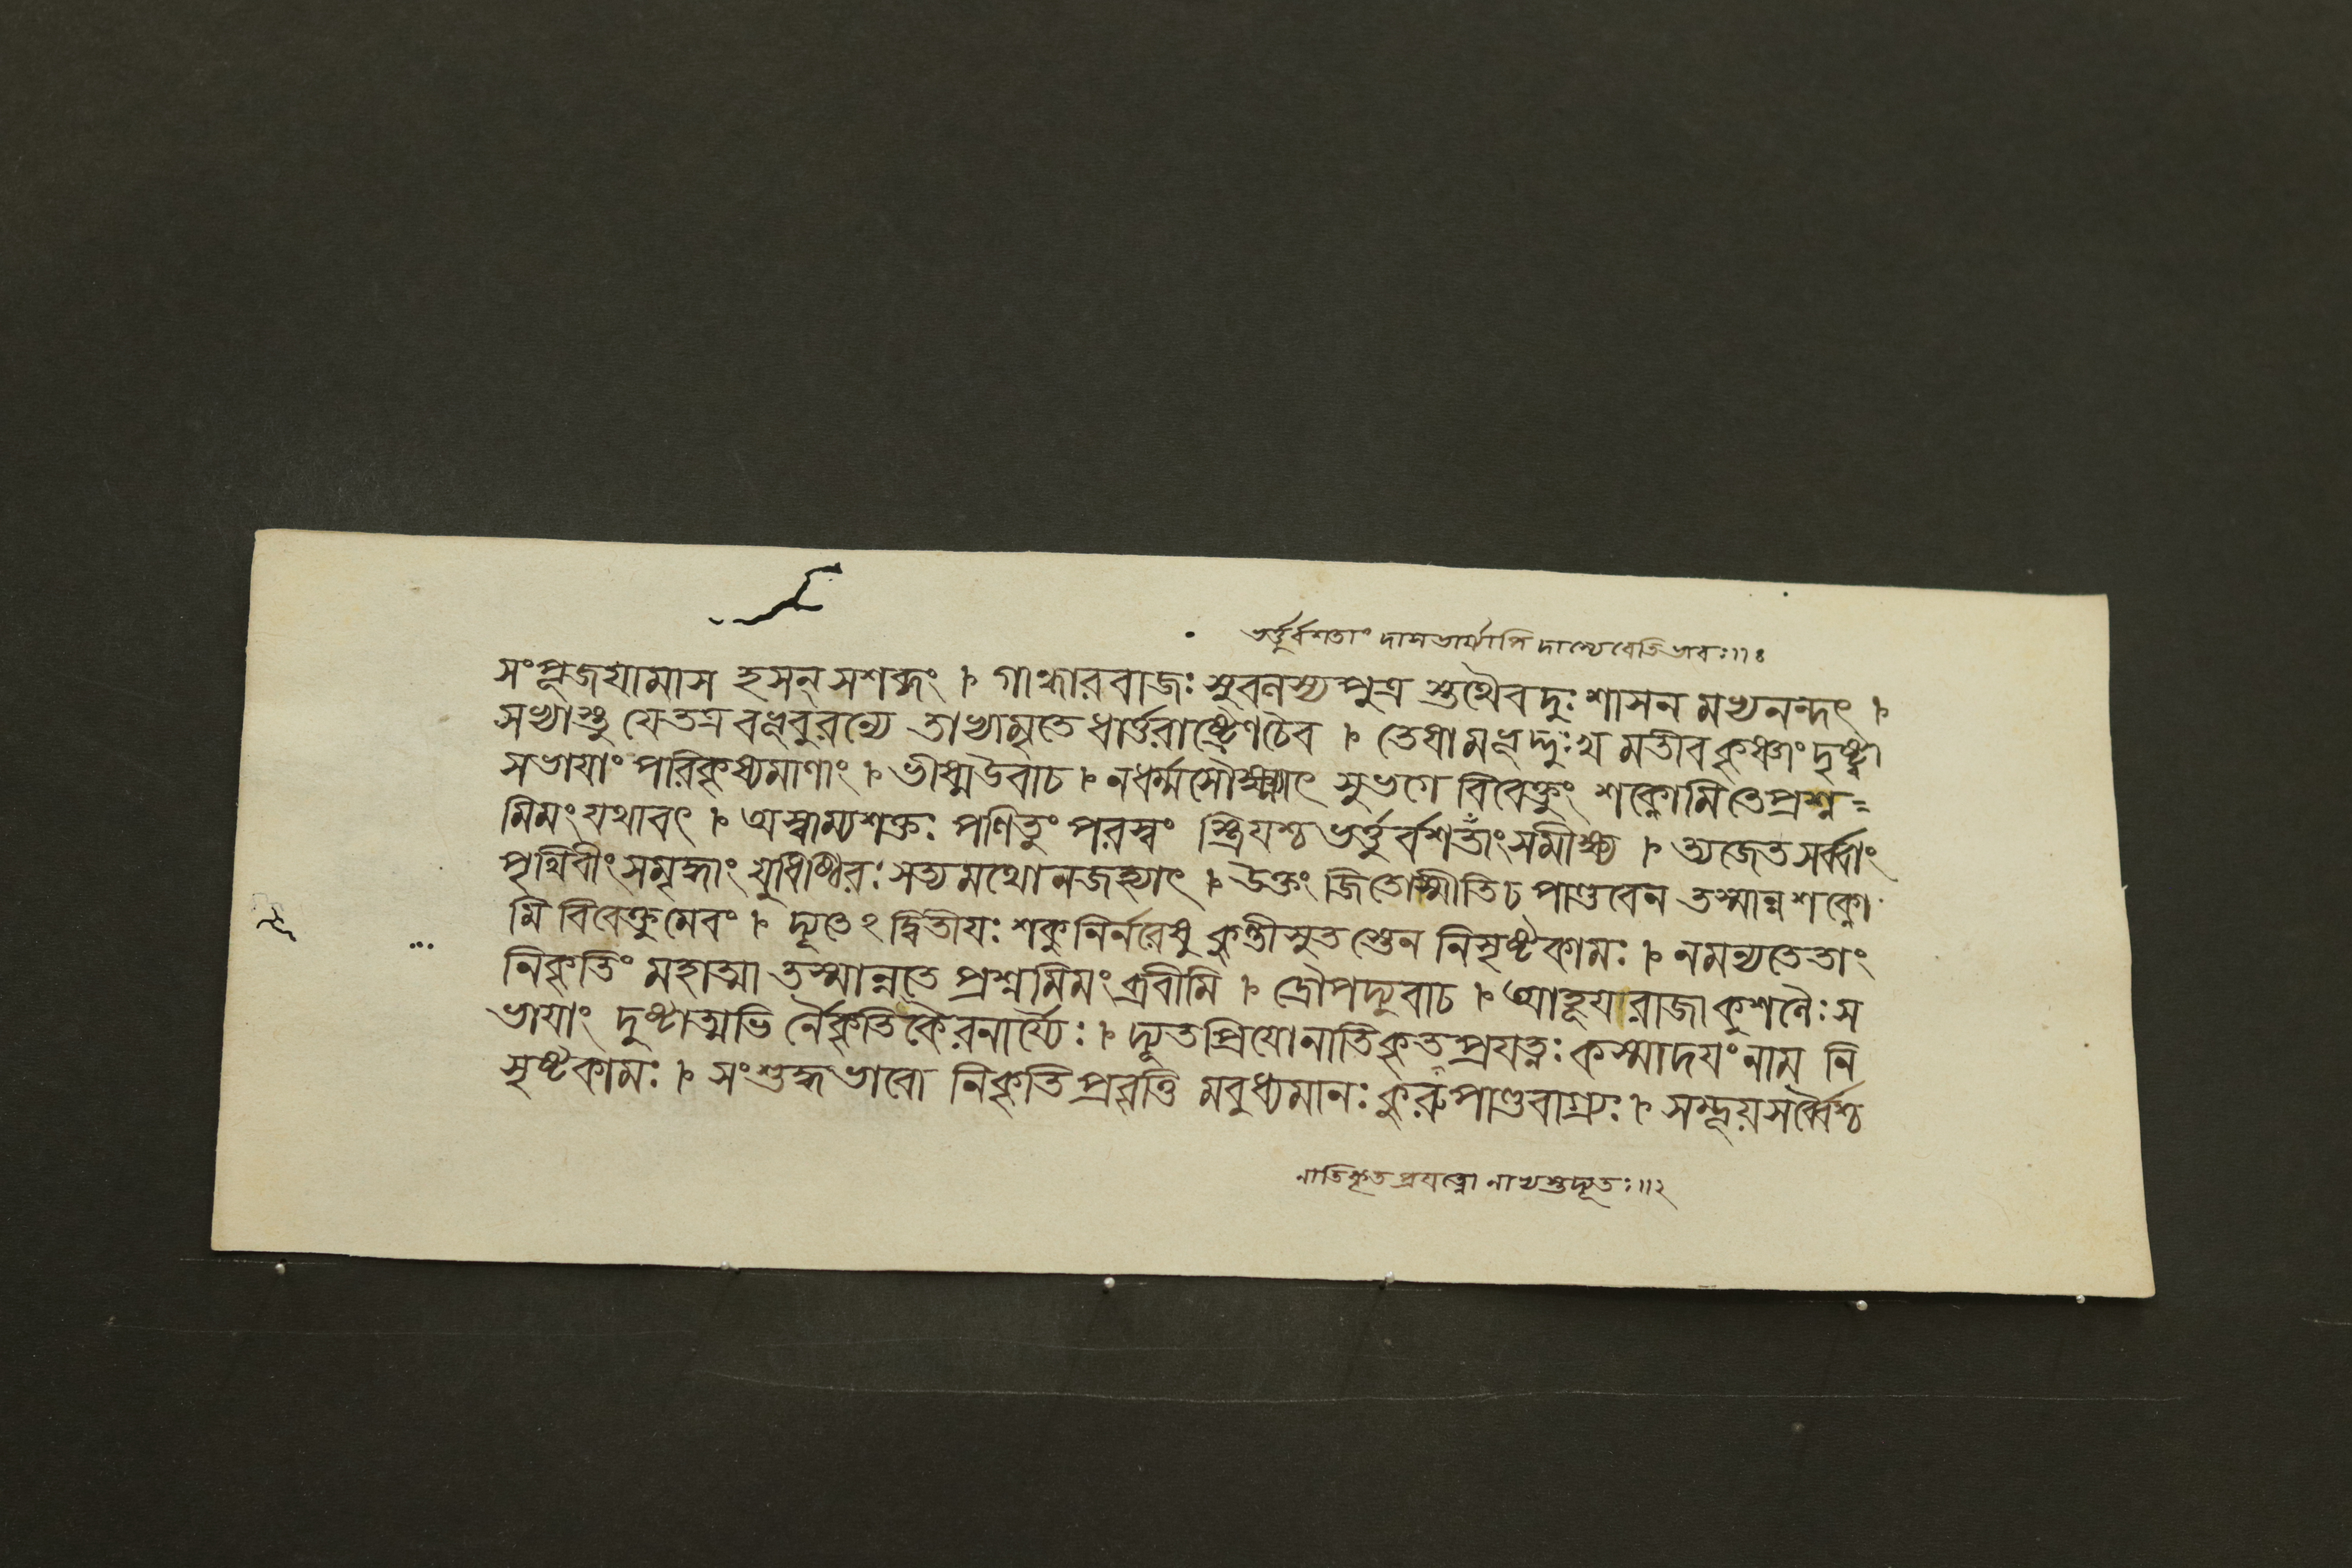 ভর্ত্তুর্ব্বশতাং দাসভার্য্যাপি দাস্যেবেতিভাবঃ॥ঃ
সংপূজযামাস হসন্ সশব্দং । গান্ধাররাজঃ সুবলস্য পুত্র স্তথৈবদুঃশাসন মভ্যনন্দৎ ।
সভ্যাস্তু যেতত্র বভূবুরন্যে তাভ্যামৃতে ধার্ত্তরাষ্ট্রেণচৈব । তেষামভূদ্দুঃখ মতীব কৃষ্ণাং দৃষ্ট্বা
সভাযাং পরিকৃষ্যমাণাং । ভীষ্মউবাচ । নধর্ম্মসৌক্ষ্ম্যাৎ সুভগে বিবেক্তুং শক্নোমিতেপ্রশ্ন=
মিমং যথাবৎ । অস্বাম্যশক্তঃ পণিতুং পরস্বং স্ত্রিযশ্চ ভর্ত্তুর্বশতাংসমীক্ষ্য । ত্যজেত সর্ব্বাং
পৃথিবীং সমৃদ্ধাং যুধিষ্ঠিরঃ সত্যমথোনজহ্যাৎ । উক্তং জিতোস্মীতিচ পাণ্ডবেন তস্মান্ন শক্নো
মি বিবেক্তুমেবং । দ্যূতেঽ দ্বিতীযঃ শকুনির্নরেষু কুন্তীসুত স্তেন নিসৃষ্টকামঃ । নমন্যতেতাং
নিকৃতিং মহাত্মা তস্মান্নতে প্রশ্নমিমং ব্রবীমি । দ্রৌপদ্যুবাচ । আহূযরাজা কুশলৈঃ স
ভাযাং দুষ্টাত্মভি র্নৈকৃতিকৈরনার্য্যৈঃ । দ্যূতপ্রিযোনাতিকৃতপ্রযত্নঃ কস্মাদযংনাম নি
সৃষ্টকামঃ । সংশুদ্ধভাবো নিকৃতিপ্রবৃত্তি মবুধ্যমানঃ কুরুপাণ্ডবাগ্র্যঃ । সম্ভূয়সর্ব্বৈশ্চ
নাতিকৃতপ্রযত্নো নাভ্যস্তদ্যূতঃ॥২